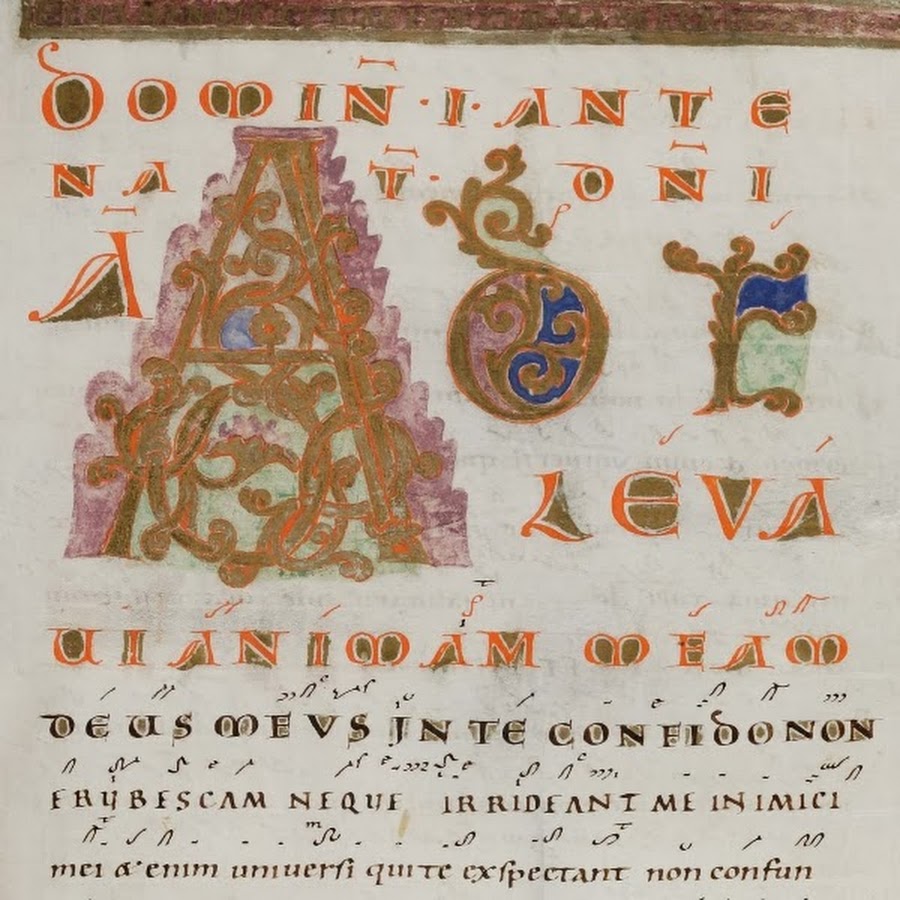 DOMIN̄·I·ANTE
NAT̄·DN̄I
Ā
AD TE
LEVA
UI ANIMAM MEAM
DEUS MEVS JN TE CONFIDO NON
ERUBESCAM NEQUE IRRIDEANT ME INIMICI
mei & enim univerſi qui te exſpectant non confun